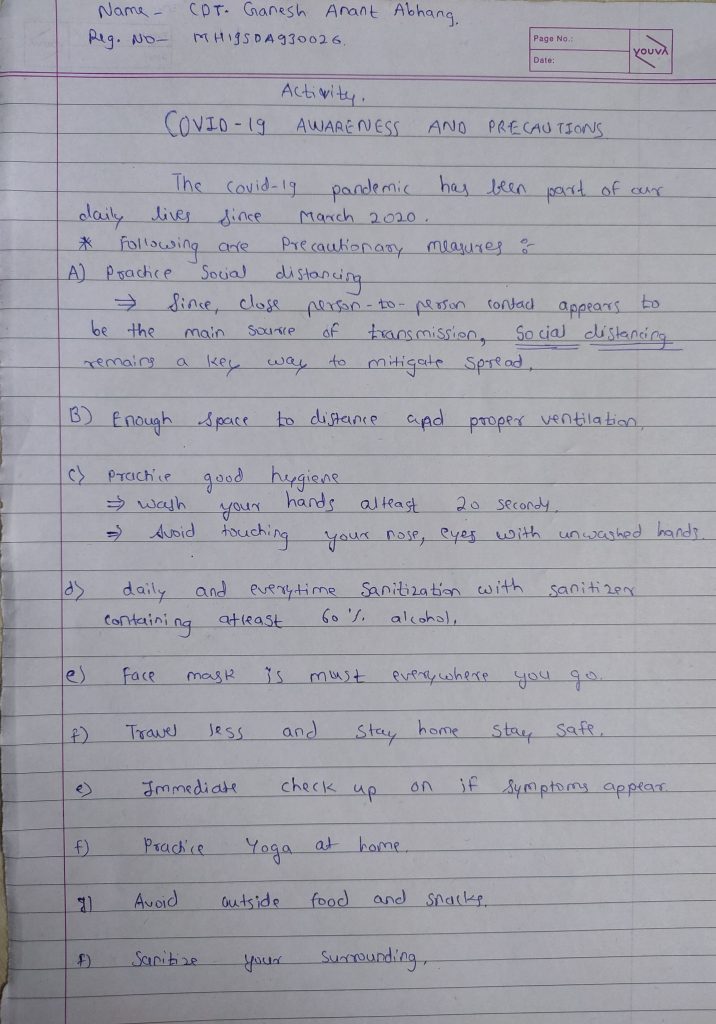 Name - CDT. Ganesh Anant Abhang.
Reg. No- MH19SDA930026.
Page No.:
Date:
YOUVA
Activity.
COVID-19 AWARENESS AND PRECAUTIONS
The covid-19 pandemic has been part of our
daily lives since March 2020.
* Following are Precautionary measures :
A) Practice Social distancing
⇒ Since, close person-to-person contact appears to
be the main source of transmission, Social distancing
remains a key way to mitigate spread.
B) Enough space to distance and proper ventilation.
c) Practice good hygiene
⇒ wash your hands atleast 20 seconds.
⇒ Avoid touching your nose, eyes with unwashed hands.
d) daily and everytime Sanitization with sanitizer
containing atleast 60 % alcohol.
e) Face mask is must everywhere you go.
f) Travel less and stay home stay safe.
e) Immediate check up on if symptoms appear.
f) Practice Yoga at home.
g) Avoid outside food and snacks.
f) Sanitize your surrounding.